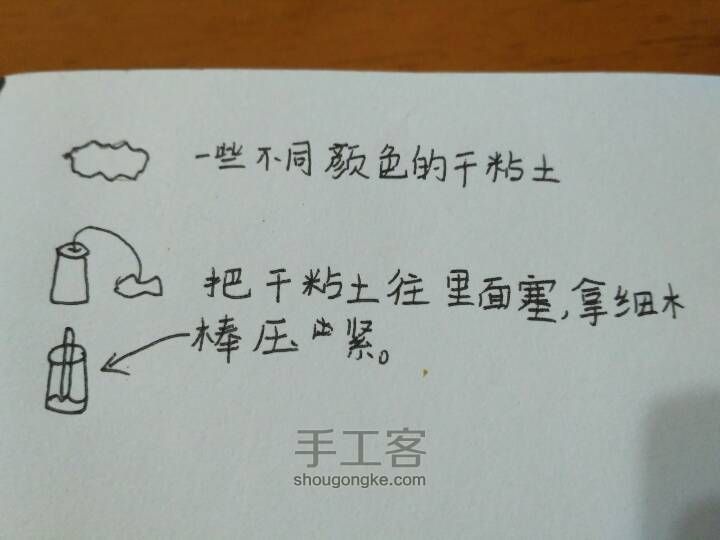 一些不同颜色的干粘土
把干粘土往里面塞,拿细木
棒压紧。
手工客
shougongke.com